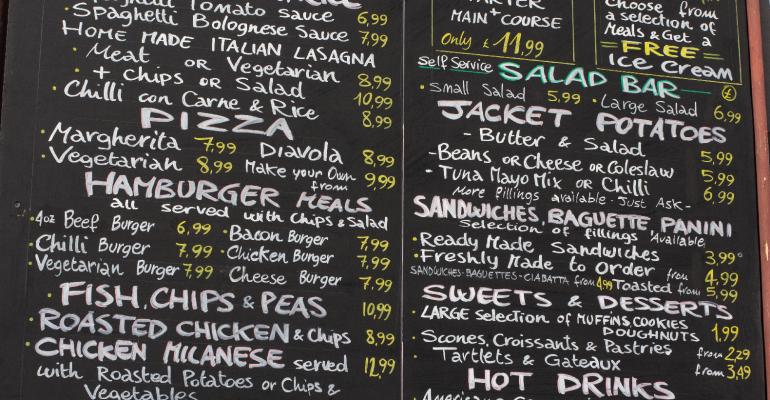 Spaghetti Tomato Sauce 6,99
• Spaghetti Bolognese Sauce 7,99
HOME MADE ITALIAN LASAGNA
• Meat OR Vegetarian 8,99
+ Chips OR Salad 10,99
• Chilli con Carne & Rice 8,99
PIZZA
• Margherita 7,99 Diavola 8,99
• Vegetarian 8,99 Make your Own from 9,99
HAMBURGER MEALS
all served with Chips & Salad
• 4oz Beef Burger 6,99 • Bacon Burger 7,99
• Chilli Burger 7,99 • Chicken Burger 7,99
• Vegetarian Burger 7,99 Cheese Burger 7,99
• FISH, CHIPS & PEAS 10,99
• ROASTED CHICKEN & Chips 8,99
• CHICKEN MILANESE served 12,99
with Roasted Potatoes or Chips &
Vegetables
MAIN + COURSE
Only £ 11,99
Choose from
a selection of
Meals & Get a
= FREE =
Ice Cream
Self Service SALAD BAR
• Small Salad 5,99 • Large Salad 6,99
JACKET POTATOES
- Butter & Salad 5,99
- Beans OR Cheese OR Coleslaw 5,99
- Tuna Mayo Mix OR Chilli 6,99
More fillings available - Just Ask -
SANDWICHES, BAGUETTE, PANINI
Selection of fillings Available
• Ready Made Sandwiches 3,99
• Freshly Made to Order from 4,99
SANDWICHES - BAGUETTES - CIABATTA from 4,99 Toasted from 5,99
SWEETS & DESSERTS
• LARGE Selection of MUFFINS, COOKIES
DOUGHNUTS 1,99
• Scones, Croissants & Pastries from 2,29
• Tartlets & Gateaux from 3,49
HOT DRINKS